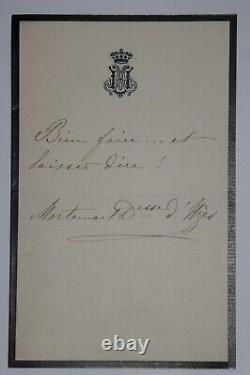 Bien faire... et
laisser dire !
Mortemart Dsse d'Uzès
ebay